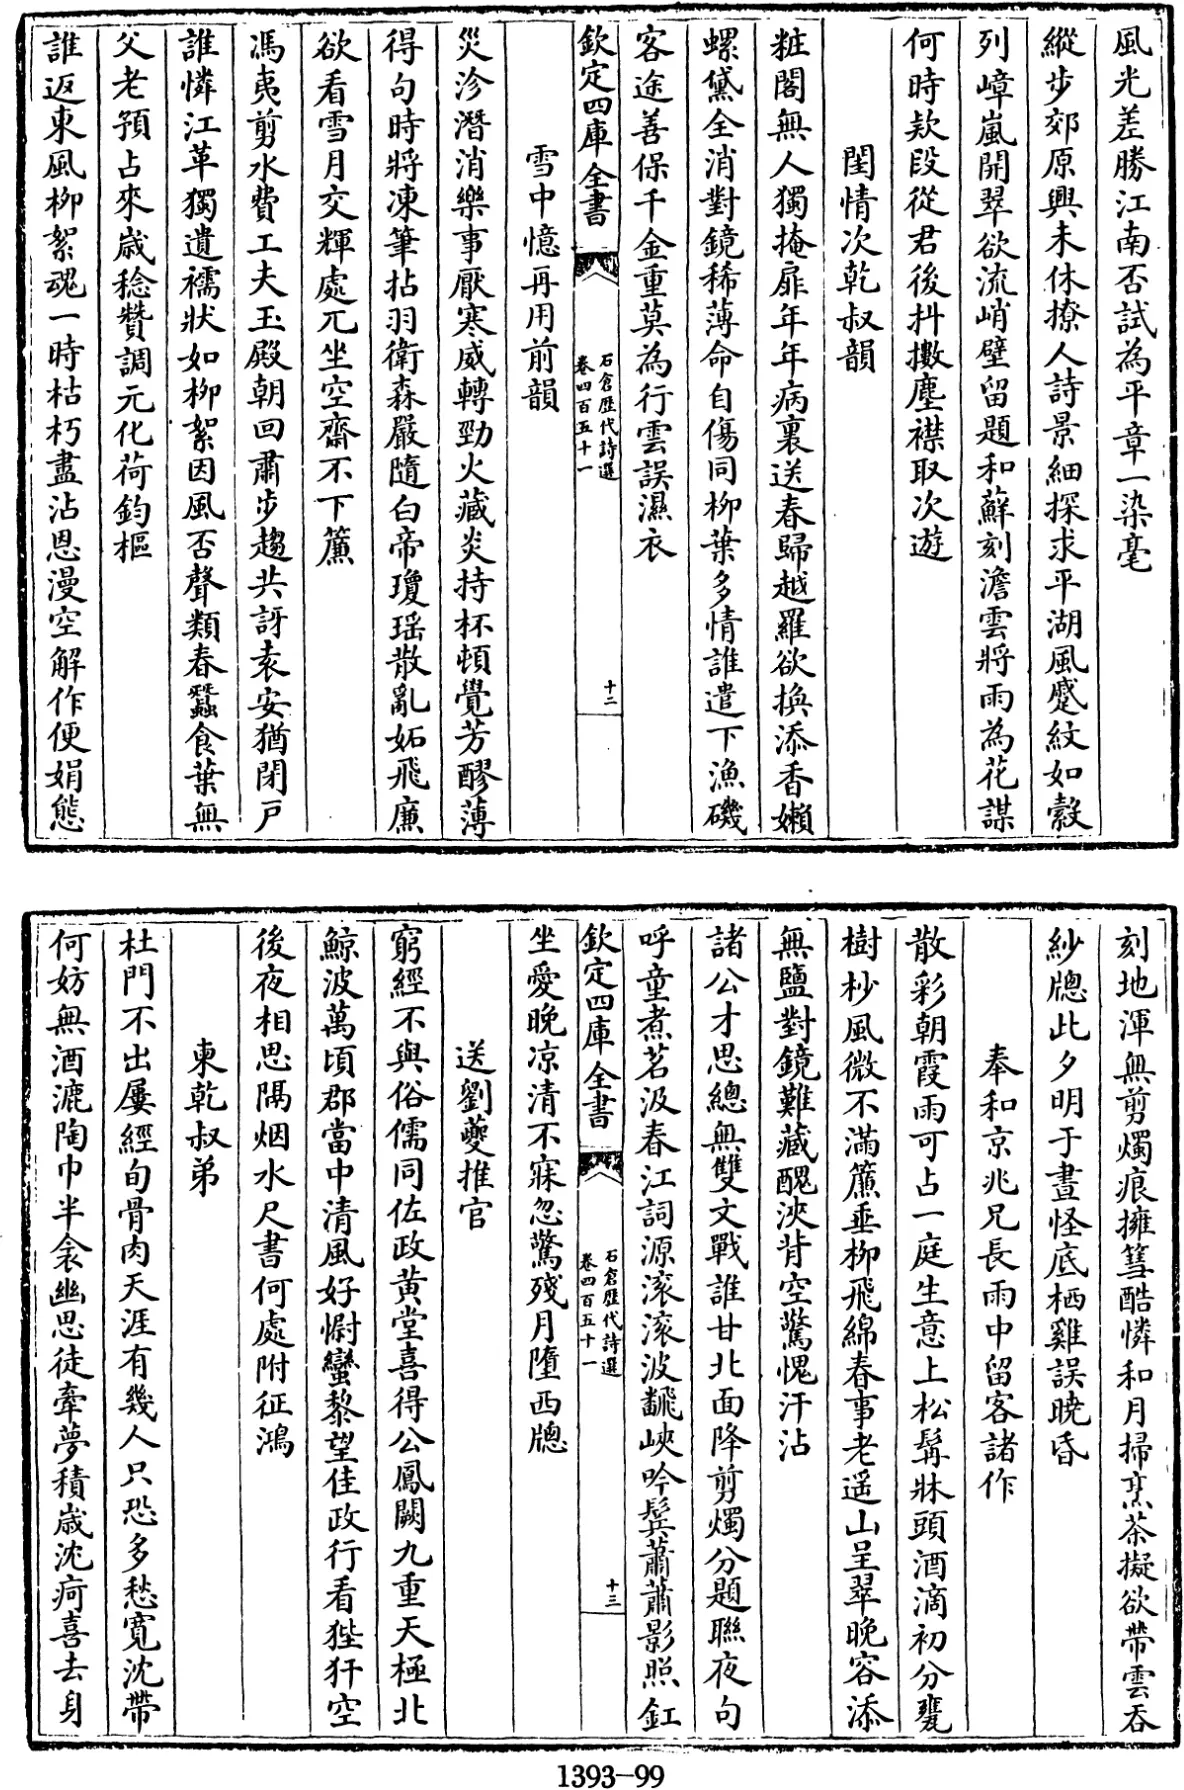 風光差勝江南否試為平章一染毫
縱步郊原興未休撩人詩景細探求平湖風蹙紋如縠
列嶂嵐開翠欲流峭壁留題和蘇刻澹雲將雨為花謀
何時欵段從君後抖擻塵襟取次遊
閨情次乾叔韻
粧閣無人獨掩扉年年病裏送春歸越羅欲換添香嬾
螺黛全消對鏡稀薄命自傷同柳葉多情誰遣下漁磯
客途善保千金重莫為行雲誤濕衣
欽定四庫全書
石倉歷代詩選
卷四百五十一
十二
雪中憶再用前韻
災沴潛消樂事厭寒威轉勁火藏炎持杯頓覺芳醪薄
得句時將凍筆拈羽衛森嚴隨白帝瓊瑶散亂妬飛廉
欲看雪月交輝處兀坐空齋不下簾
馮夷剪水費工夫玉殿朝回肅步趨共訝袁安猶閉戸
誰憐江革獨遺襦狀如柳絮因風否聲類春蠶食葉無
父老預占來歲稔贊調元化荷鈞樞
誰返東風柳絮魂一時枯朽盡沾恩漫空解作便娟態
刻地渾無剪燭痕擁篲酷憐和月掃烹茶擬欲帶雲吞
紗牕此夕明于晝怪底栖雞誤曉昏
奉和京兆兄長雨中留客諸作
散彩朝霞雨可占一庭生意上松髯牀頭酒滴初分甕
樹杪風微不滿簾垂柳飛綿春事老遥山呈翠晚容添
無鹽對鏡難藏醜浹背空驚愧汗沾
諸公才思總無雙文戰誰甘北面降剪燭分題聯夜句
呼童煮茗汲春江詞源滚滚波翻峽吟鬂蕭蕭影照釭
欽定四庫全書
石倉歷代詩選
卷四百五十一
十三
坐愛晚凉清不寐忽驚殘月墮西牕
送劉夔推官
窮經不與俗儒同佐政黄堂喜得公鳳闕九重天極北
鯨波萬頃郡當中清風好慰蠻黎望佳政行看狴犴空
後夜相思隔烟水尺書何處附征鴻
柬乾叔弟
杜門不出屢經旬骨肉天涯有幾人只恐多愁寛沈帶
何妨無酒漉陶巾半衾幽思徒牽夢積歲沈疴喜去身
1393—99